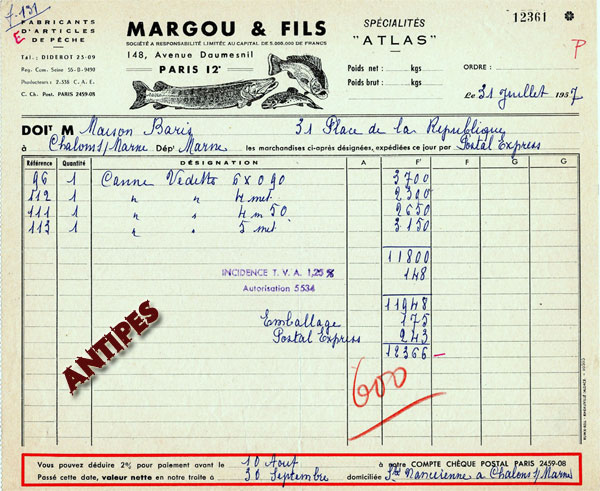 f. 131
E
FABRICANTS
D'ARTICLES
DE PÊCHE
Tél.: DIDEROT 23-09
Reg. Com. Seine 55-B-9490
Producteurs : 2.338 C.A.E.
C. Ch. Post. PARIS 2459-08
MARGOU & FILS
SOCIÉTÉ A RESPONSABILITÉ LIMITÉE AU CAPITAL DE 5.000.000 DE FRANCS
148, Avenue Daumesnil
PARIS 12e
SPÉCIALITÉS
"ATLAS"
Poids net : kgs
Poids brut : kgs
12361
P
ORDRE :
Le 31 Juillet 1957
DOIT M Maison Baris 31 Place de la République
à Chalons s/ Marne Dép' Marne les marchandises ci-après désignées, expédiées ce jour par Postal Express
Référence Quantité DÉSIGNATION A F' F G G
96 1 Canne Vedette 6 x 0 90 3700
112 1 " " 4 met. 2300
111 1 " " 4 m 50 2650
113 1 " " 5 met 3150
11800
INCIDENCE T.V.A. 1,25 % 148
Autorisation 5534
11948
Emballage 175
Postal Express 243
12366
600
ANTIPES
Vous pouvez déduire 2% pour paiement avant le 10 Aout à notre COMPTE CHÈQUE POSTAL PARIS 2459-08
Passé cette date, valeur nette en notre traite à 30 Septembre domiciliée Sté Nancéienne a Chalons s/ Marne